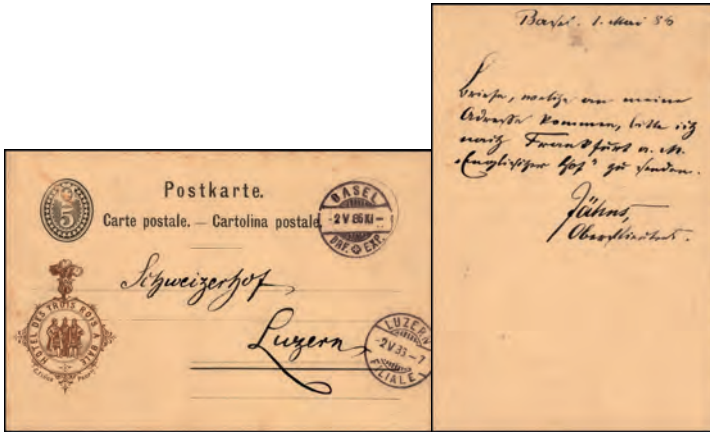 Postkarte.
Carte postale. — Cartolina postale.
5
BASEL
-2 V 86 XI-
BRF. EXP.
HÔTEL DES TROIS ROIS A BALE
Schweizerhof
Luzern
LUZERN
-2 V 86 -7
FILIALE
Basel. 1. Mai 86
Briefe, welche an meine
Adresse kommen, bitte ich
nach Frankfurt a. M.
"Englischer Hof" zu senden.
Jähns,
Oberstlieutnt.